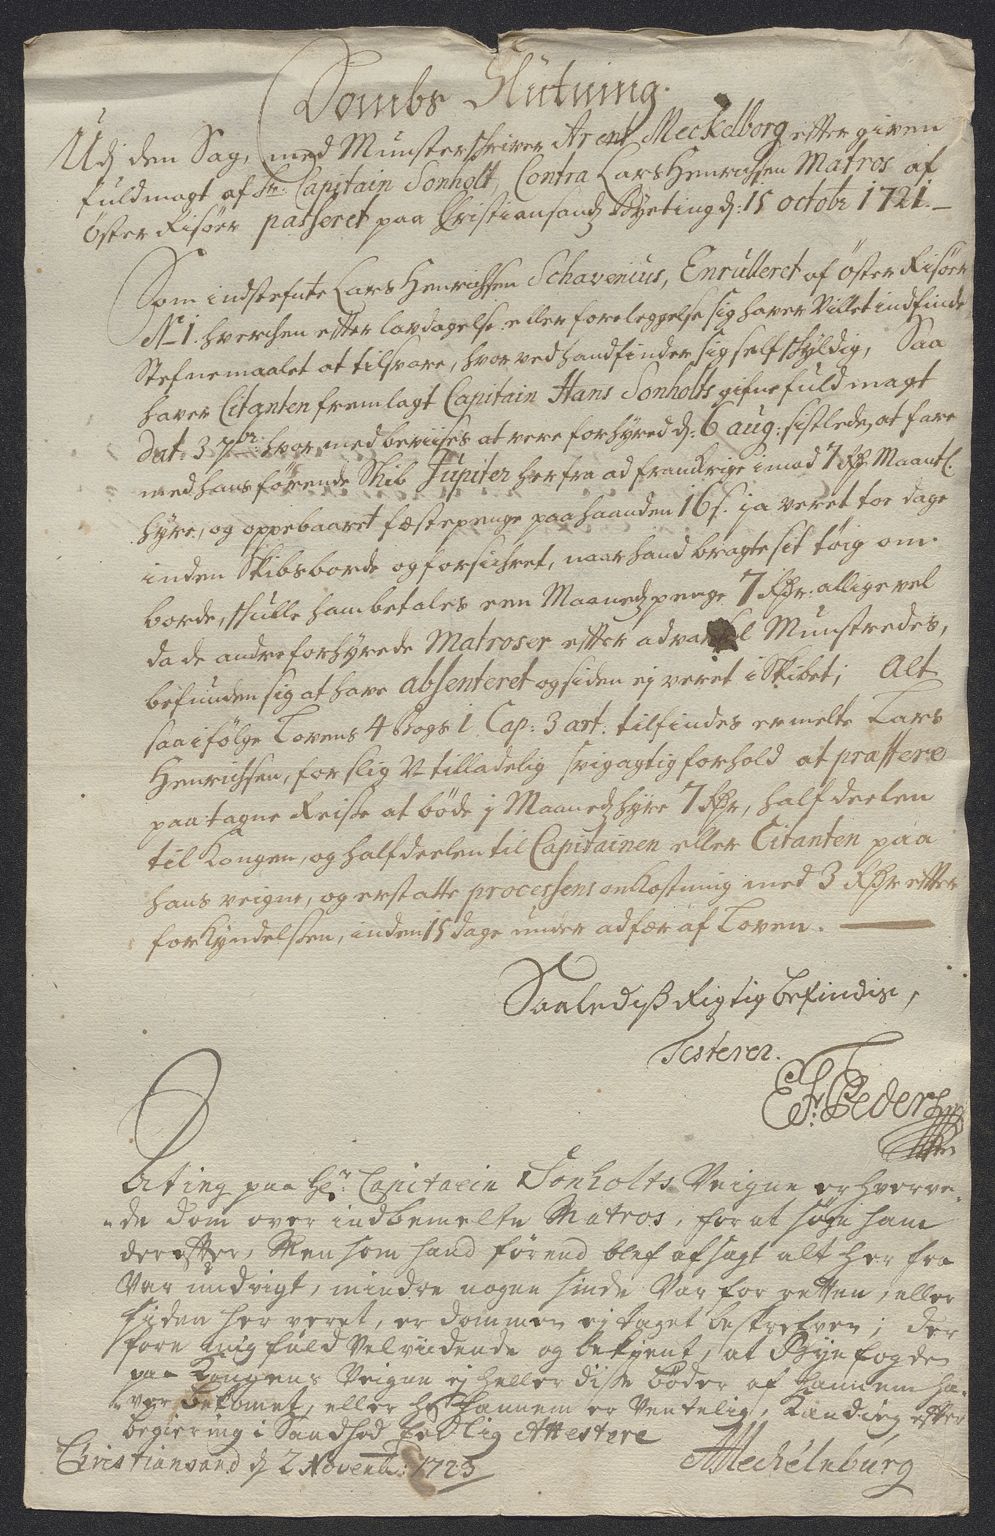 Dombs Slutning.
Udj den Sag, med Munsterschriver Arent Meckelborg etter given
fuldmagt af Hr: Capitain Sonholt, Contra Lars Henrichsen Matros af
Öster Risöer passeret paa Christiansandz Byeting d: 15 octobr 1721.
Som indstefnte Lars Henrichsen Schavenius, Enrulleret af Öster Risöer
No 1. hverchen etter lavdagelse eller foreleggelse sig haver Villet indfinde
Stefnemaalet at tilsvare, hvorved hand finder sig self schyldig, Saa
haver Citanten fremlagt Capitain Hans Sonholts gifne fuldmagt
dat: 3 7br: hvormed beviises at vere forhyred d: 6 aug: sistleden, at fare
med hans förende Skib Jupiter herfra ad frankrige imod 7 Rdr Maantl:
hyre, og oppebaaret fæstepenge paa haanden 16 s. ja veret toe dage
inden Skibsborde og forsichret, naar hand bragte sit töig om-
borde, schulle ham betales een Maanedz penge 7 Rdr: alligevel
da de andre forhyrede Matroser etter advarsel Munstredes,
befunden sig at have absenteret og siden ej veret i Skibet; Alt
saa i fölge Lovens 4 Bogs 1. Cap: 3 art. tilfindes ermelte Lars
Henrichsen, for slig U-tilladelig svigagtig forhold at præstere
paatagne Reise at böde j Maanedz hyre 7 Rdr, halfdeelen
til Kongen, og halfdeelen til Capitainen eller Citanten paa
hans veigne, og erstatte processens onkostning med 3 Rdr etter
forkyndelsen, inden 15 dage under adfær af Loven.
Saaledis Rigtig befindis,
Testerer.
E: F: Pedersen
Ating paa Hr: Capitaein Sonholts Veigne erhverve-
de dom over indbemelte Matros, for at söge ham
deretter, Men som hand förend blef afsagt alt her fra
Var undvigt, mindre nogen sinde Var for retten, eller
siden her veret, er dommen ej taget beskrefven; der
fore mig fuld Velvidende og bekient, at Byefogden
paa Kongens Veigne ej heller disse böder af hannem ha-
ver bekomet, eller hos hannem er Ventelig, Kand ieg efter
begiering i Sandhed sælig Attestere
Christiansand d 2 Novembr: 1723
AMechelnburg